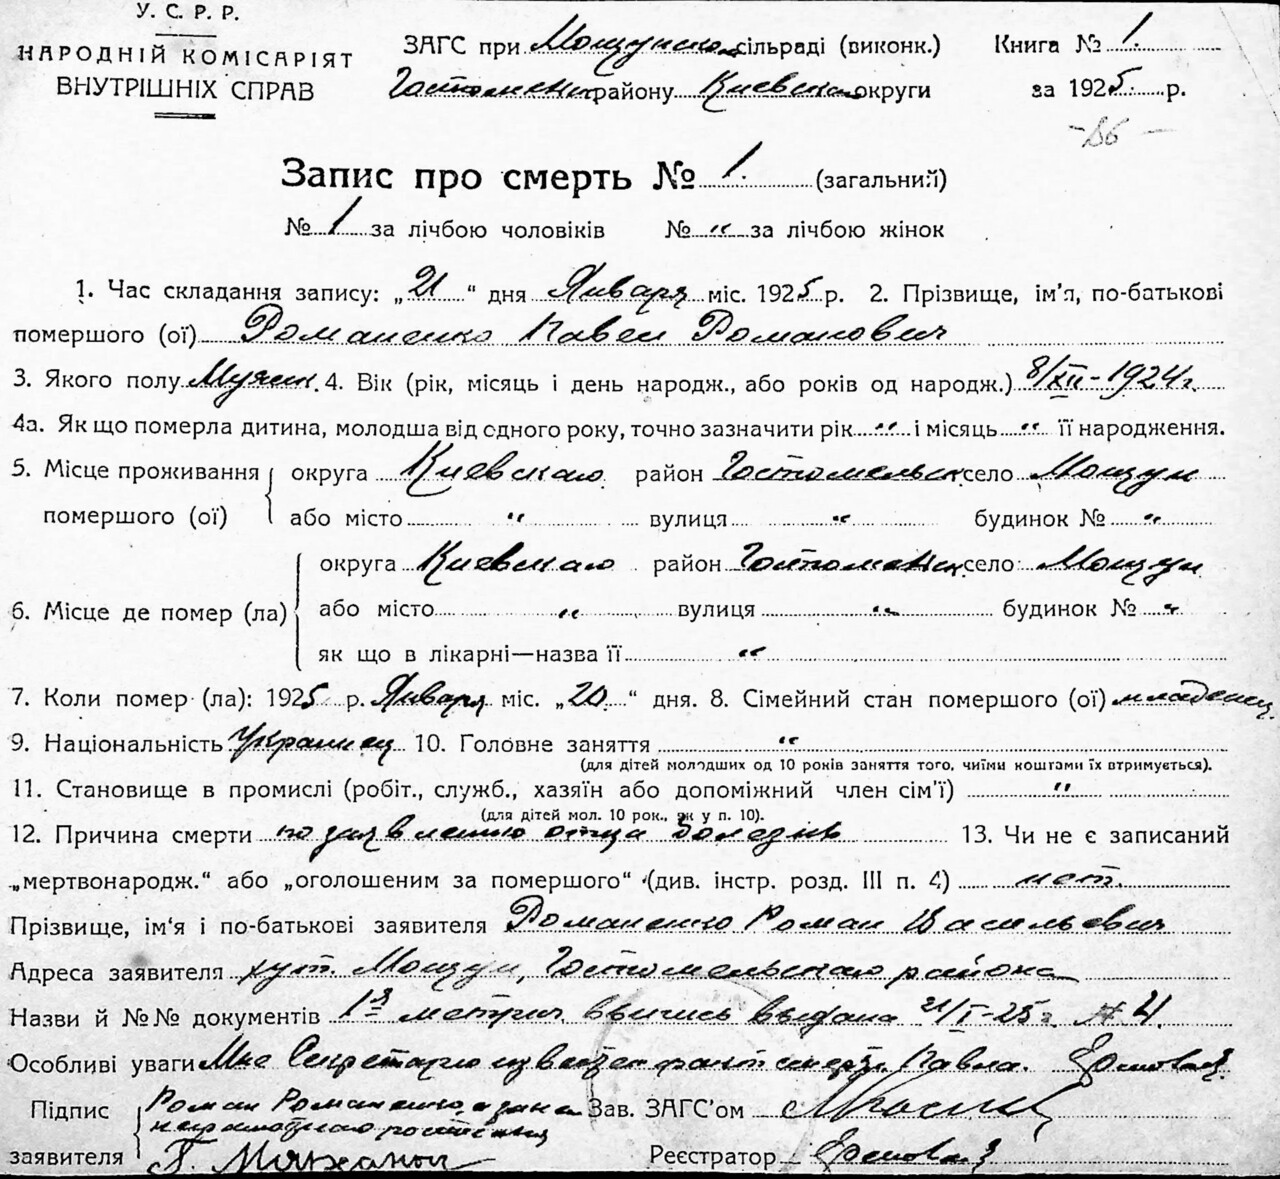 У. С. Р. Р.
НАРОДНІЙ КОМІСАРІЯТ
ВНУТРІШНІХ СПРАВ
ЗАГС при Мощунском сільраді (виконк.) Книга № 1.
Гостомельск району Киевскаго округи за 1925 р.
Запис про смерть № 1. (загальний)
№ 1 за лічбою чоловіків № " за лічбою жінок
1. Час складання запису: „21“ дня Января міс. 1925 р. 2. Прізвище, ім'я, по-батькові
помершого (ої) Романенко Павел Романович
3. Якого полу Мужск. 4. Вік (рік, місяць і день народж., або років од народж.) 8/XII-1924 г.
4а. Як що померла дитина, молодша від одного року, точно зазначити рік " і місяць " її народження.
5. Місце проживання помершого (ої) округа Киевскаго район Гостомельск село Мощун
або місто " вулиця " будинок № "
6. Місце де помер (ла) округа Киевскаго район Гостомельск село Мощун
або місто " вулиця " будинок № "
як що в лікарні—назва її "
7. Коли помер (ла): 1925 р. Января міс. „20“ дня. 8. Сімейний стан помершого (ої) младенец
9. Національність Украинец 10. Головне заняття "
(для дітей молодших од 10 років заняття того, чиїми коштами їх втримується).
11. Становище в промислі (робіт., служб., хазяїн або допоміжний член сім'ї) "
(для дітей мол. 10 рок., як у п. 10).
12. Причина смерти по заявлению отца болезнь 13. Чи не є записаний
„мертвонародж.“ або „оголошеним за помершого“ (див. інстр. розд. III п. 4) нет.
Прізвище, ім'я і по-батькові заявителя Романенко Роман Васильевич
Адреса заявителя хут. Мощун, Гостомельскаго района
Назви й №№ документів 1я метрич. выпись выдана 21/I-25 г. № 4.
Особливі уваги Мне Секретарю известен факт смерти Павла.
Підпис заявителя Роман Романенко, а за него
неграмотного расписался
Зав. ЗАГС'ом
Реєстратор